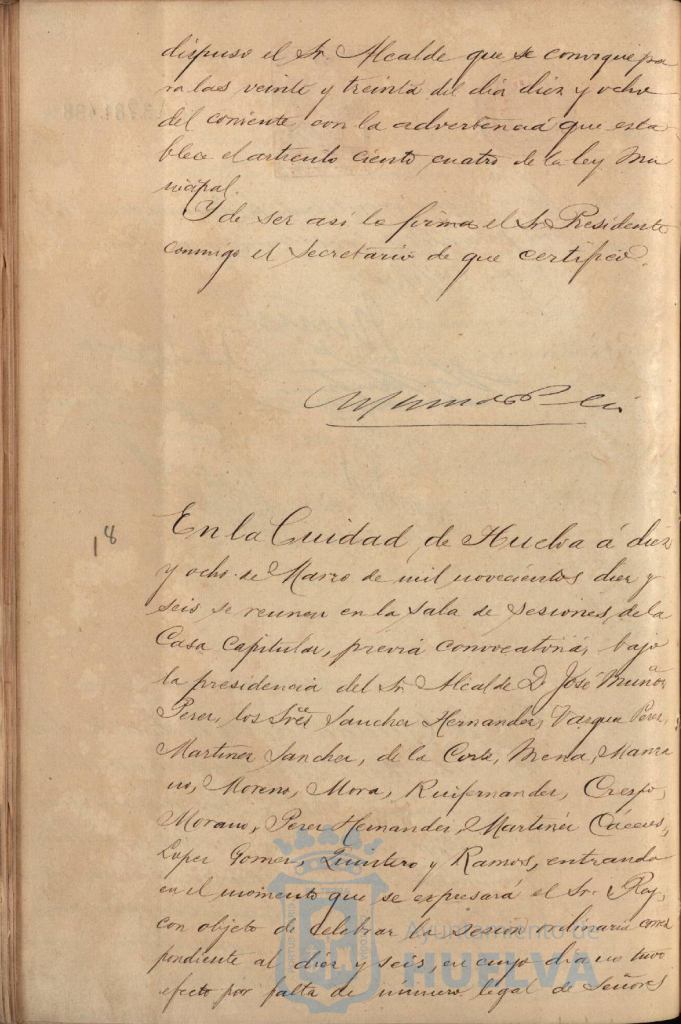 dispuso el Sr. Alcalde que se convoque pa
ra las veinte y treinta del dia diez y ocho
del corriente con la advertencia que esta
blece el articulo ciento cuatro de la ley Mu
nicipal.
Y de ser asi lo firma el Sr. Presidente
conmigo el Secretario de que certifico.
18
En la Cuidad de Huelva á diez
y ocho de Marzo de mil novecientos diez y
seis se reunen en la sala de sesiones, de la
Casa Capitular, previa convocatoria, bajo
la presidencia del Sr. Alcalde D. José Muñoz
Perez, los Sres Sanchez Hernandez, Vazquez Perez,
Martinez Sanchez, de la Corte, Mena, Manza
no, Moreno, Mora, Ruifernandez, Crespo,
Morano, Perez Hernandez, Martinez Cáceres,
Lopez Gomez, Quintero y Ramos, entrando
en el momento que se expresará el Sr. Roy,
con objeto de celebrar la sesion ordinaria corres
pondiente al diez y seis, en cuyo dia no tuvo
efecto por falta de número legal de Señores
Ayuntamiento de
HUELVA